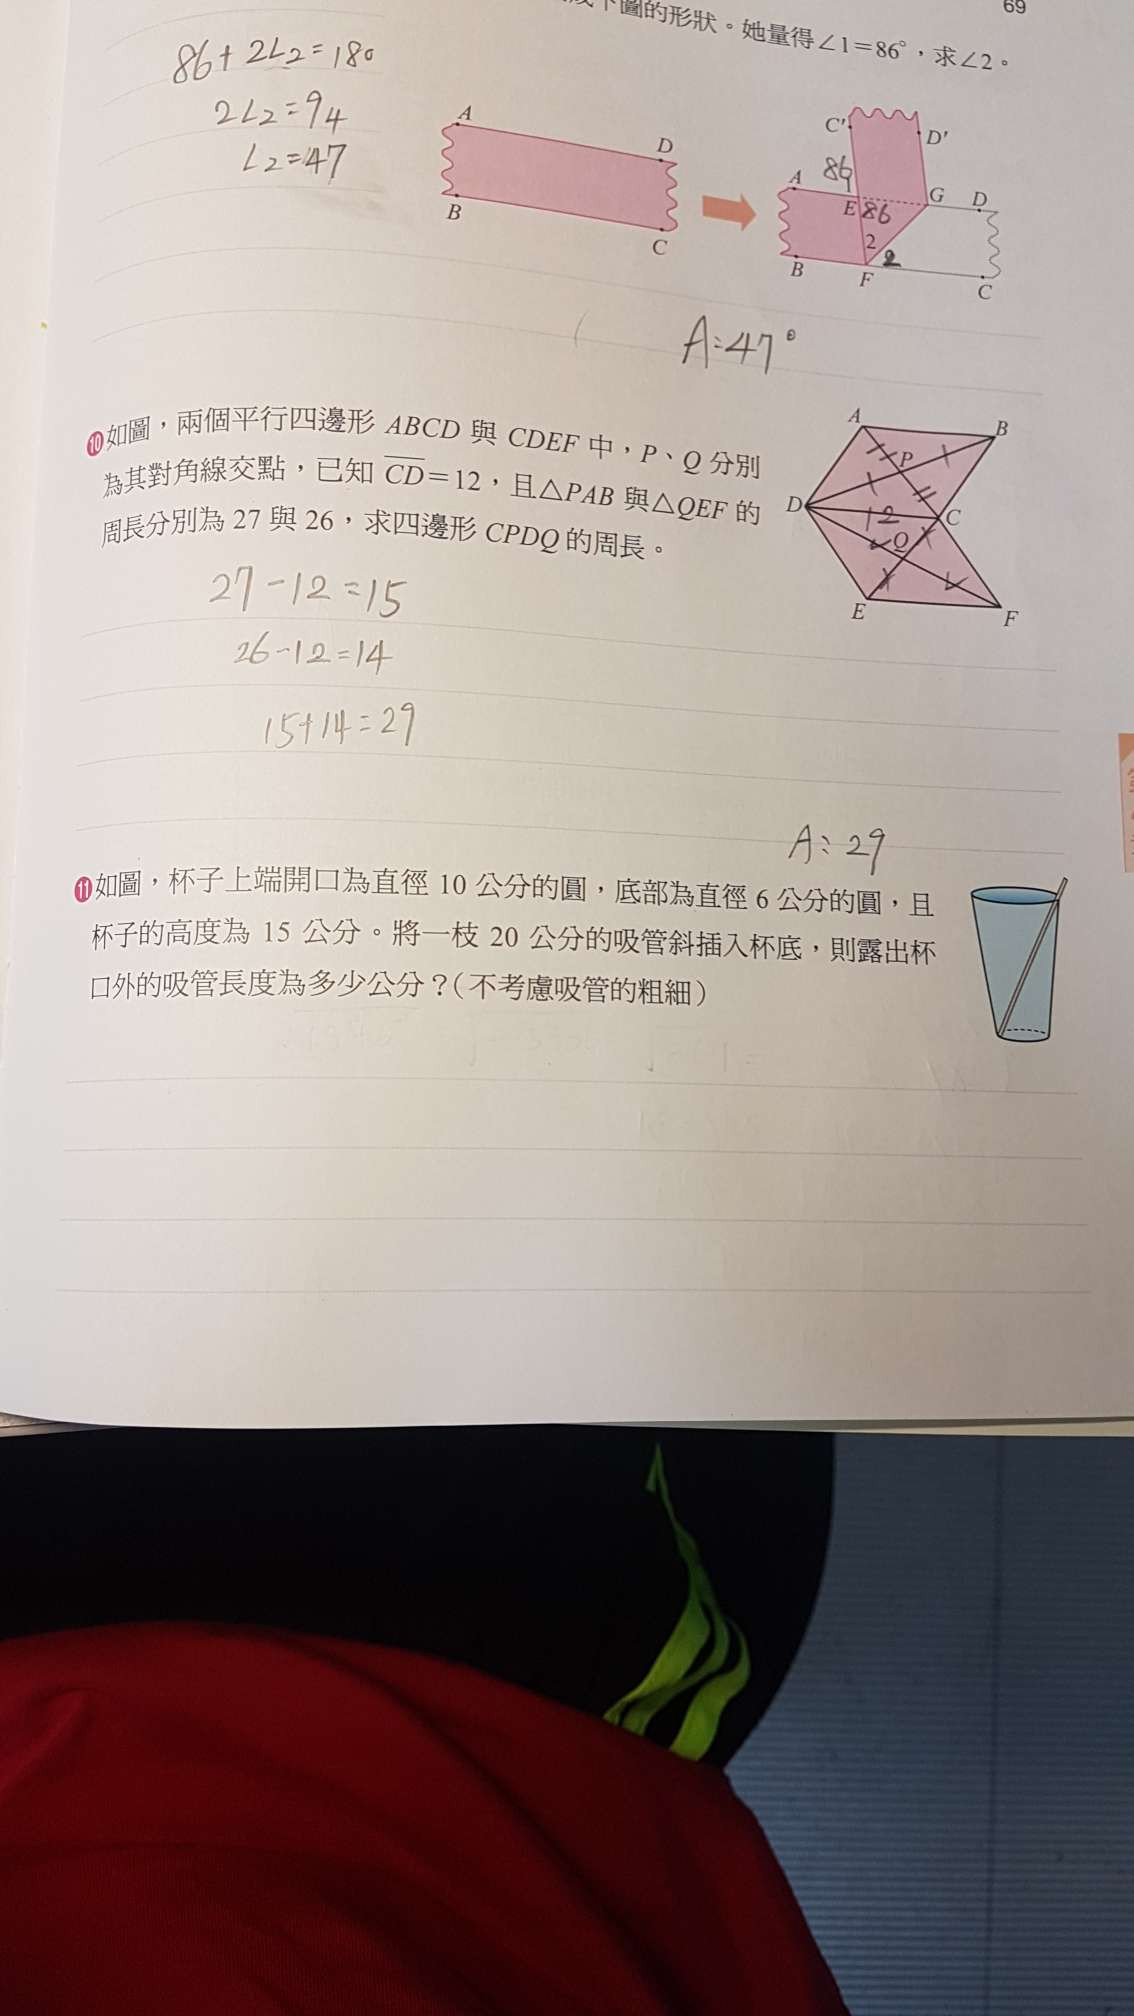 69
下圖的形狀。她量得∠1=86°,求∠2。
86+2∠2=180
2∠2=94
∠2=47
A
D
B
C
C'
D'
A
86
1
E
86
G
D
2
2
B
F
C
A:47°
⑩如圖,兩個平行四邊形 ABCD 與 CDEF 中,P、Q 分別
為其對角線交點,已知 CD=12,且△PAB 與△QEF 的
周長分別為 27 與 26,求四邊形 CPDQ 的周長。
A
B
P
D
12
C
Q
E
F
27-12=15
26-12=14
15+14=29
A:29
⑪如圖,杯子上端開口為直徑 10 公分的圓,底部為直徑 6 公分的圓,且
杯子的高度為 15 公分。將一枝 20 公分的吸管斜插入杯底,則露出杯
口外的吸管長度為多少公分?(不考慮吸管的粗細)